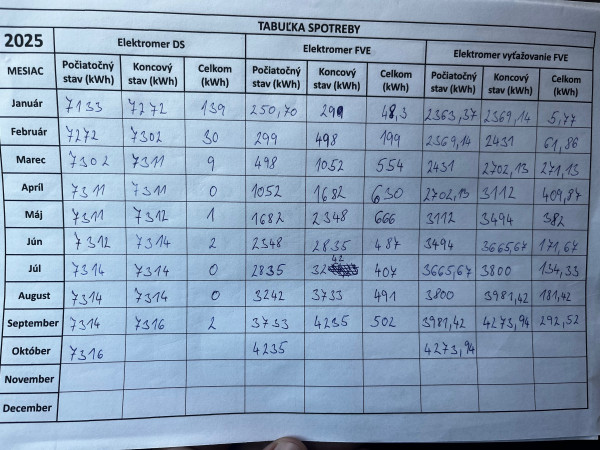 TABUĽKA SPOTREBY
2025 Elektromer DS Elektromer FVE Elektromer vyťažovanie FVE
MESIAC Počiatočný stav (kWh) Koncový stav (kWh) Celkom (kWh) Počiatočný stav (kWh) Koncový stav (kWh) Celkom (kWh) Počiatočný stav (kWh) Koncový stav (kWh) Celkom (kWh)
Január 7133 7272 139 250,70 299 48,3 2363,37 2369,14 5,77
Február 7272 7302 30 299 498 199 2369,14 2431 61,86
Marec 7302 7311 9 498 1052 554 2431 2702,13 271,13
Apríl 7311 7311 0 1052 1682 630 2702,13 3112 409,87
Máj 7311 7312 1 1682 2348 666 3112 3494 382
Jún 7312 7314 2 2348 2835 487 3494 3665,67 171,67
Júl 7314 7314 0 2835 3242 407 3665,67 3800 134,33
August 7314 7314 0 3242 3733 491 3800 3981,42 181,42
September 7314 7316 2 3733 4235 502 3981,42 4273,94 292,52
Október 7316 4235 4273,94
November
December